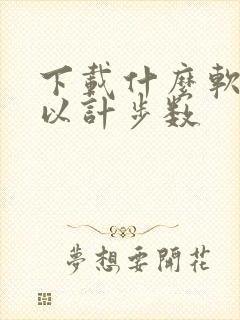 下載什麼軟
以計步数
夢想要開花